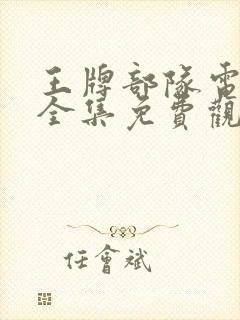 王牌部隊電
全集免費觀
任會斌